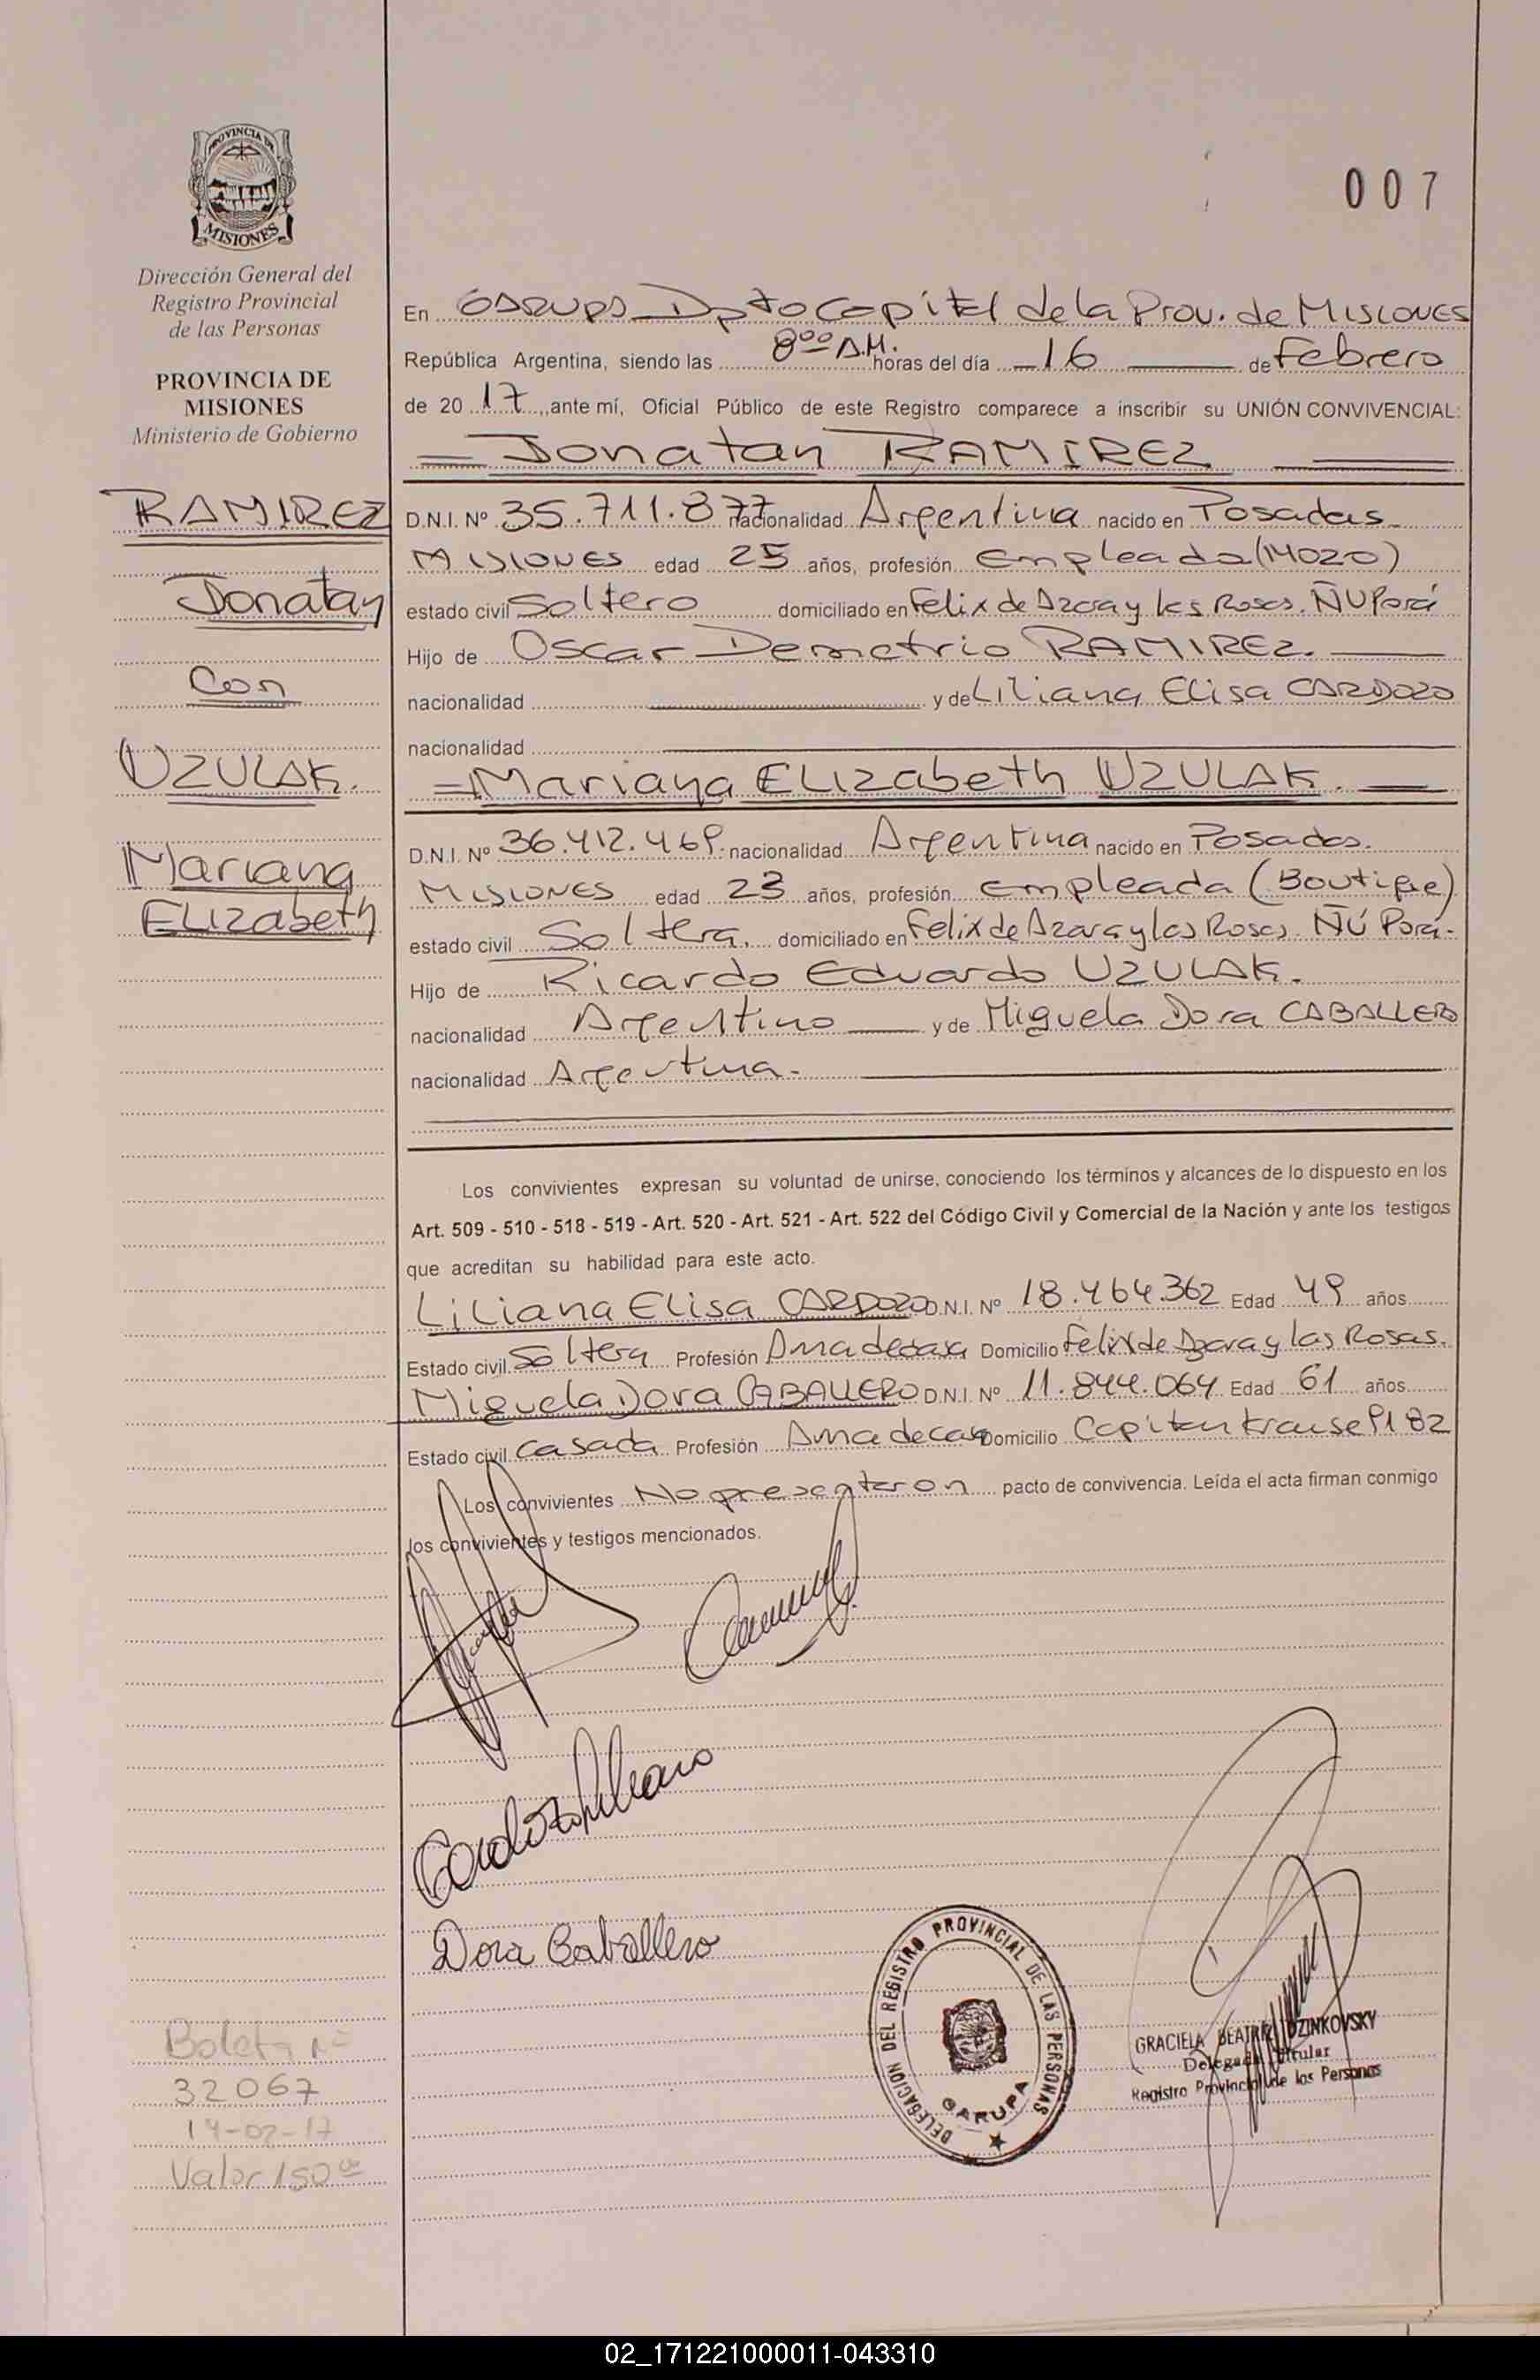 007
PROVINCIA DE
MISIONES
Dirección General del
Registro Provincial
de las Personas
PROVINCIA DE
MISIONES
Ministerio de Gobierno
RAMIREZ
Jonatan
Con
UZULAK.
Mariana
ELIzabeth
Boleta Nº
32067
14-02-17
Valor 150
En Garupa Dpto Capital de la Prov. de MISIONES
República Argentina, siendo las 8⁰⁰ A.M. horas del día 16 de Febrero
de 2017, ante mí, Oficial Público de este Registro comparece a inscribir su UNIÓN CONVIVENCIAL:
Jonatan RAMIREZ
D.N.I. Nº 35.711.877 nacionalidad Argentina nacido en Posadas
MISIONES edad 25 años, profesión Empleado (MOZO)
estado civil Soltero domiciliado en Felix de Azara y las Rosas. ÑU Porá
Hijo de Oscar Demetrio RAMIREZ.
nacionalidad y de Liliana Elisa CARDOZO
nacionalidad
Mariana ELIzabeth UZULAK.
D.N.I. Nº 36.412.469. nacionalidad Argentina nacido en Posadas.
MISIONES edad 23 años, profesión Empleada (Boutique)
estado civil Soltera. domiciliado en Felix de Azara y las Rosas ÑÚ Porá.
Hijo de Ricardo Eduardo UZULAK.
nacionalidad Argentino y de Miguela Dora CABALLERO
nacionalidad Argentina.
Los convivientes expresan su voluntad de unirse, conociendo los términos y alcances de lo dispuesto en los
Art. 509 - 510 - 518 - 519 - Art. 520 - Art. 521 - Art. 522 del Código Civil y Comercial de la Nación y ante los testigos
que acreditan su habilidad para este acto.
Liliana Elisa CARDOZO D.N.I. Nº 18.464.362 Edad 49 años
Estado civil Soltera Profesión Ama de casa Domicilio Felix de Azara y las Rosas.
Miguela Dora CABALLERO D.N.I. Nº 11.844.064 Edad 61 años
Estado civil Casada Profesión Ama de casa Domicilio Capitan Krause 9182
Los convivientes No presentaron pacto de convivencia. Leída el acta firman conmigo
los convivientes y testigos mencionados.
Cardozo Liliana
Dora Caballero
DELEGACION DEL REGISTRO PROVINCIAL DE LAS PERSONAS
GARUPA
GRACIELA BEATRIZ DZINKOVSKY
Delegada Titular
Registro Provincial de las Personas
02_171221000011-043310